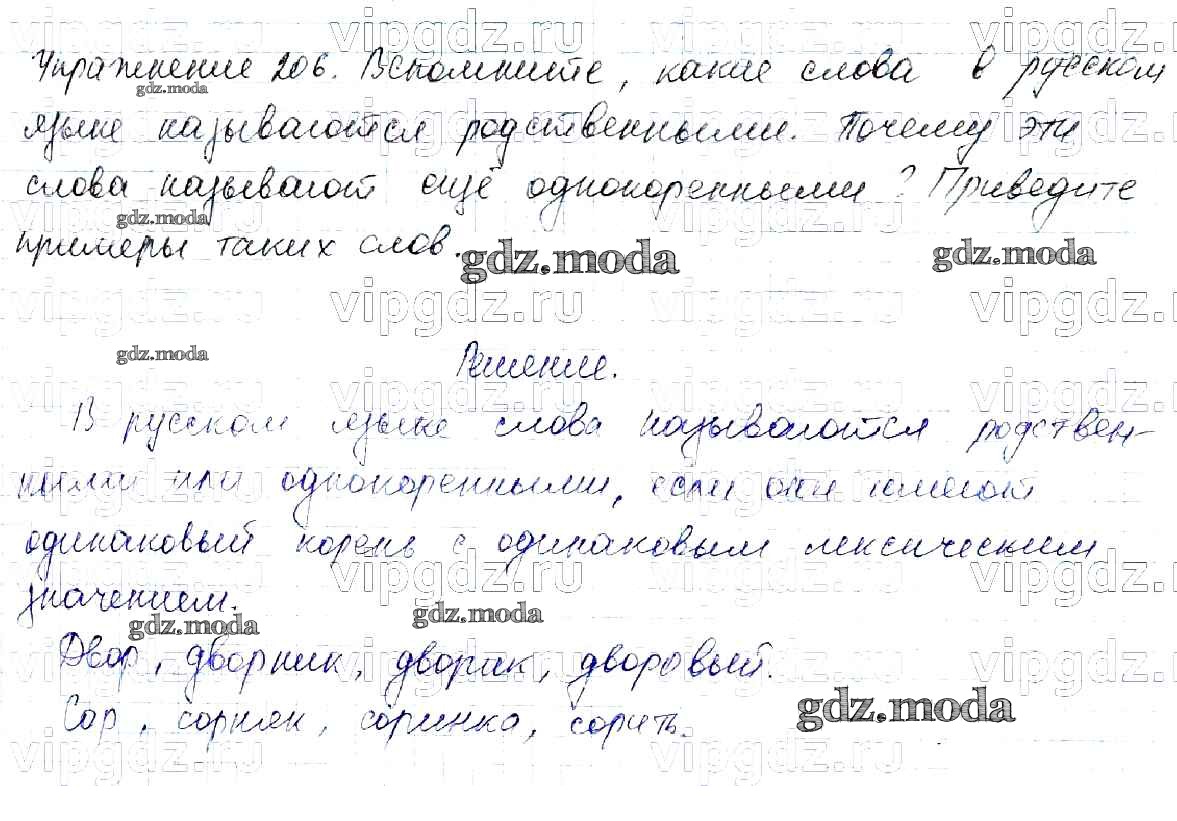 Упражнение 206. Вспомните, какие слова в русском
языке называются родственными. Почему эти
слова называют ещё однокоренными? Приведите
примеры таких слов.
Решение.
В русском языке слова называются родствен-
ными или однокоренными, если они имеют
одинаковый корень с одинаковым лексическим
значением.
Двор, дворник, дворик, дворовый.
Сор, сорняк, соринка, сорить.
gdz.moda
vipgdz.ru